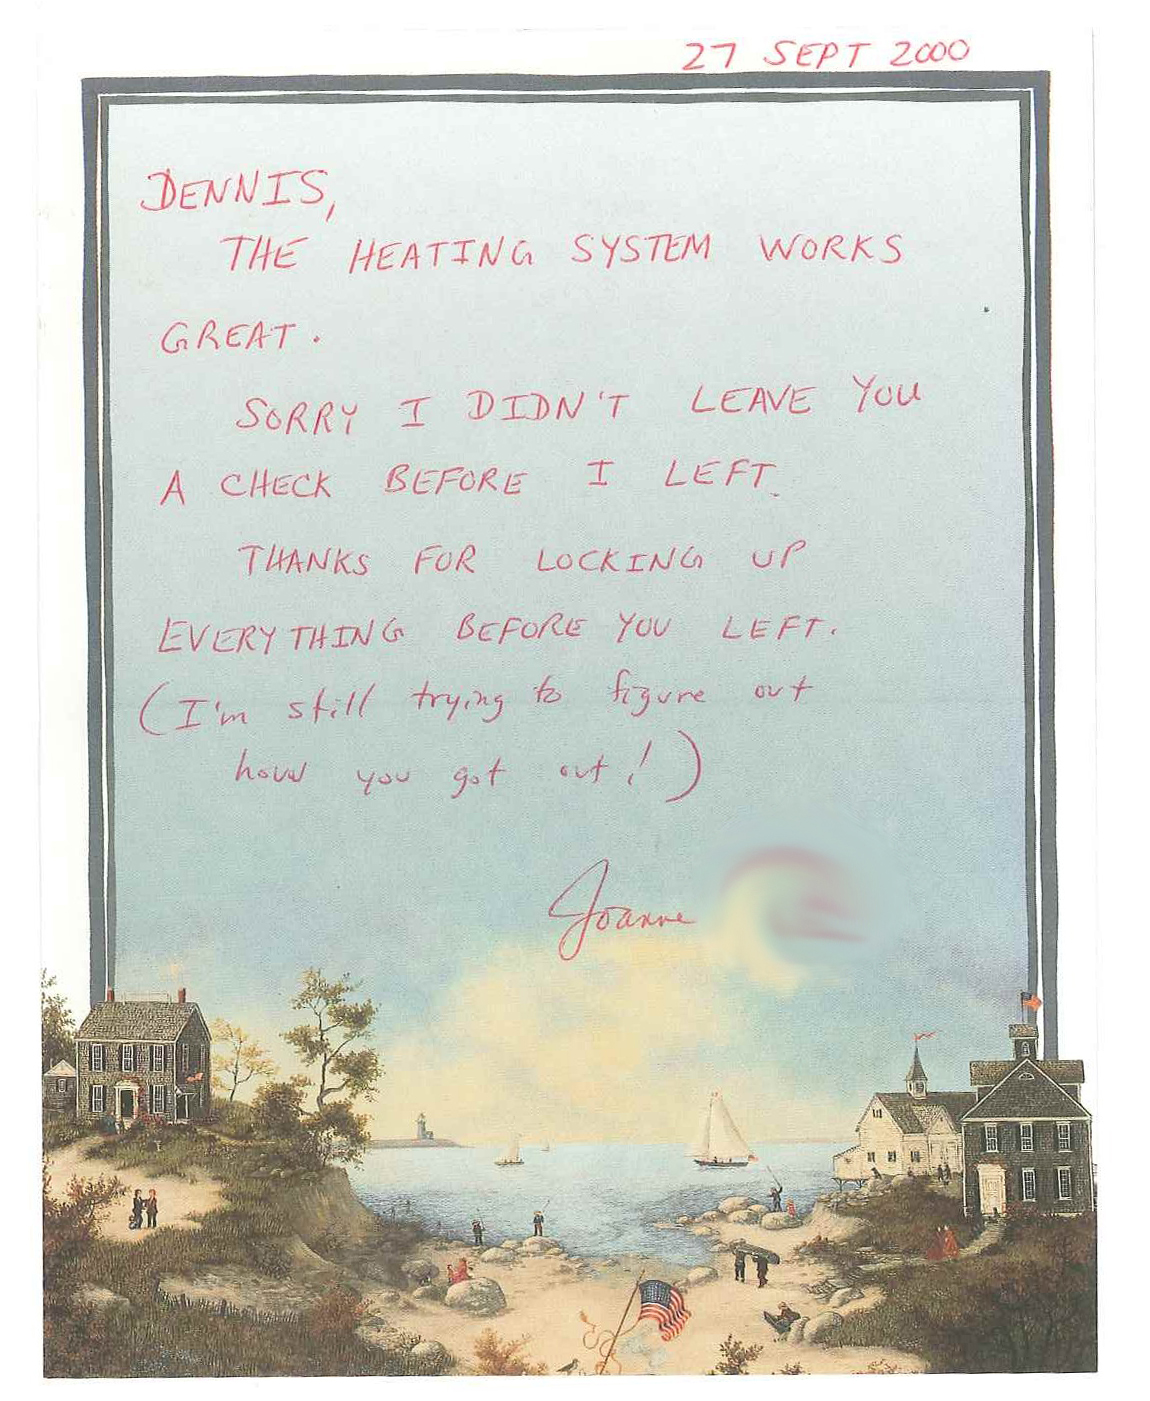 27 SEPT 2000
DENNIS,
THE HEATING SYSTEM WORKS
GREAT.
SORRY I DIDN'T LEAVE YOU
A CHECK BEFORE I LEFT.
THANKS FOR LOCKING UP
EVERYTHING BEFORE YOU LEFT.
(I'm still trying to figure out
how you got out!)
Joanne